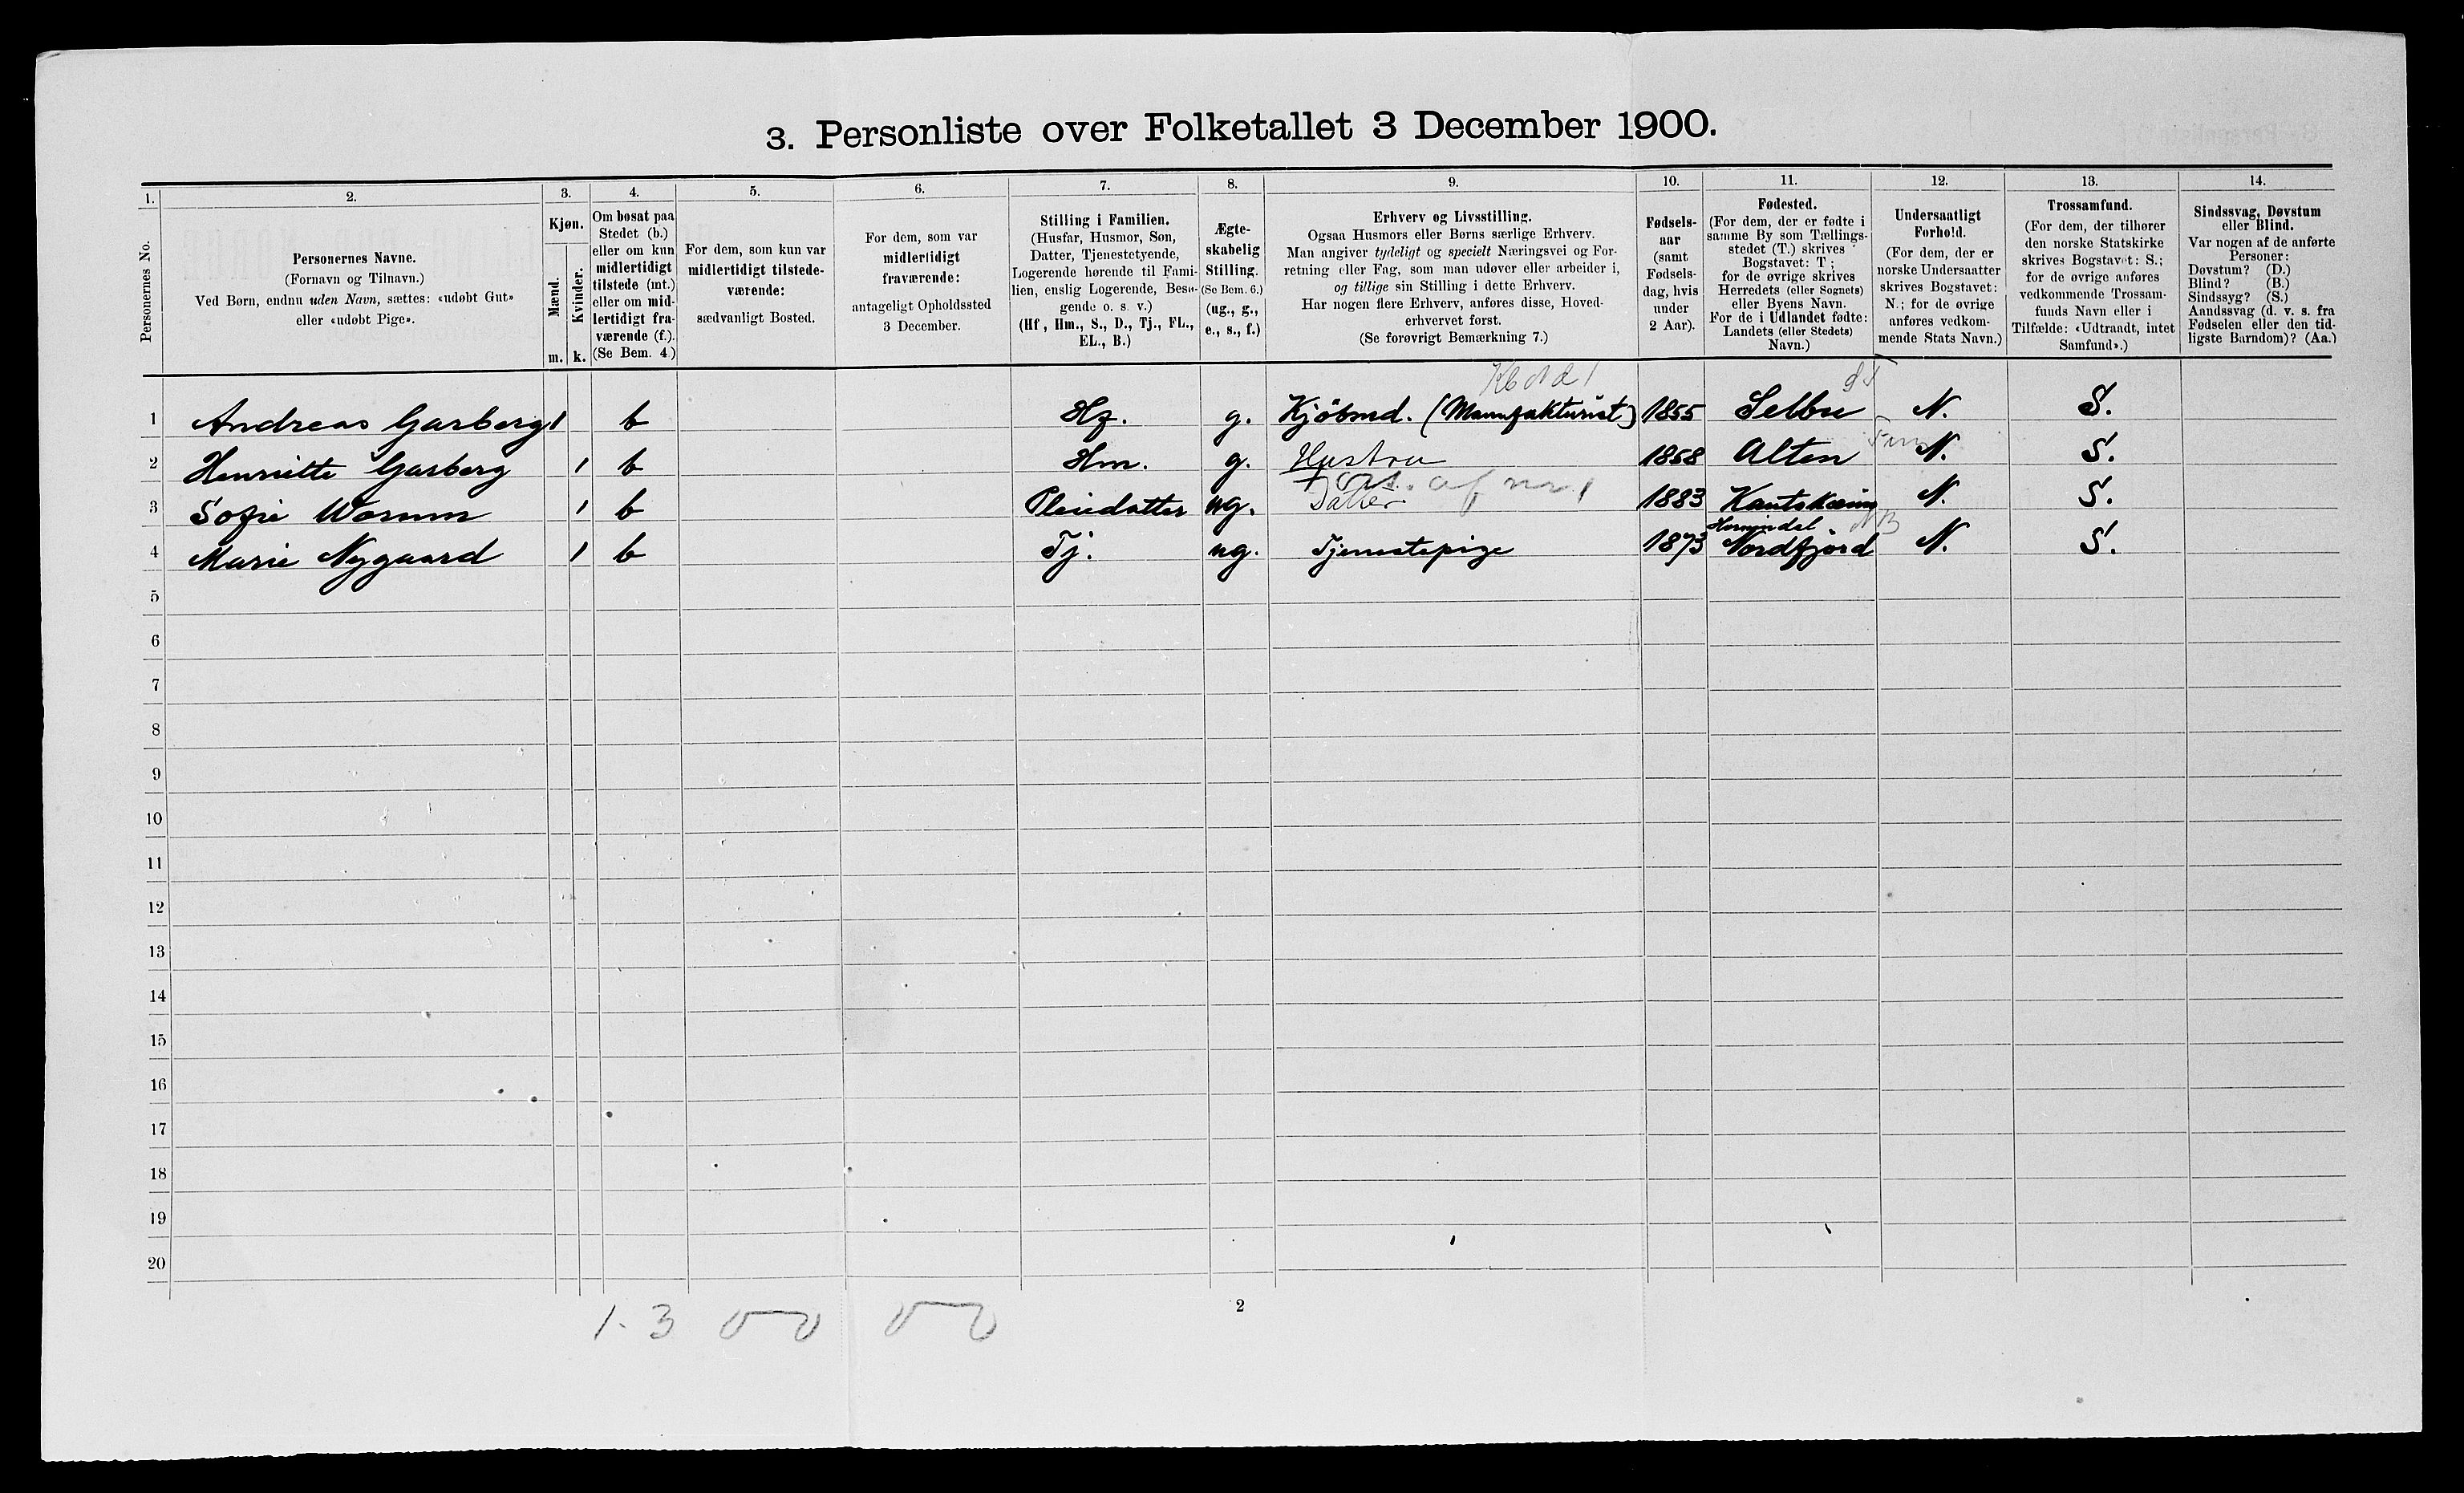 3. Personliste over Folketallet 3 December 1900.
1. 2. 3. 4. 5. 6. 7. 8. 9. 10. 11. 12. 13. 14.
Personernes No.
Personernes Navne.
(Fornavn og Tilnavn.)
Ved Børn, endnu uden Navn, sættes: «udøbt Gut»
eller «udøbt Pige».
Kjøn.
Mænd.
Kvinder.
m. k.
Om bosat paa
Stedet (b.)
eller om kun
midlertidigt
tilstede (mt.)
eller om mid-
lertidigt fra-
værende (f.).
(Se Bem. 4.)
For dem, som kun var
midlertidigt tilstede-
værende:
sædvanligt Bosted.
For dem, som var
midlertidigt
fraværende:
antageligt Opholdssted
3 December.
Stilling i Familien.
(Husfar, Husmor, Søn,
Datter, Tjenestetyende,
Logerende hørende til Fami-
lien, enslig Logerende, Besø-
gende o. s. v.)
(Hf., Hm., S., D., Tj., FL.,
EL., B.)
Ægte-
skabelig
Stilling.
(Se Bem. 6.)
(ug., g.,
e., s., f.)
Erhverv og Livsstilling.
Ogsaa Husmors eller Børns særlige Erhverv.
Man angiver tydeligt og specielt Næringsvei og For-
retning eller Fag, som man udøver eller arbeider i,
og tillige sin Stilling i dette Erhverv.
Har nogen flere Erhverv, anføres disse, Hoved-
erhvervet først.
(Se forøvrigt Bemærkning 7.)
Fødsels-
aar
(samt
Fødsels-
dag, hvis
under
2 Aar).
Fødested.
(For dem, der er fødte i
samme By som Tællings-
stedet (T.) skrives
Bogstavet: T;
for de øvrige skrives
Herredets (eller Sognets)
eller Byens Navn.
For de i Udlandet fødte:
Landets (eller Stedets)
Navn.)
Undersaatligt
Forhold.
(For dem, der er
norske Undersaatter
skrives Bogstavet:
N.; for de øvrige
anføres vedkom-
mende Stats Navn.)
Trossamfund.
(For dem, der tilhører
den norske Statskirke
skrives Bogstavet: S.;
for de øvrige anføres
vedkommende Trossam-
funds Navn eller i
Tilfælde: «Udtraadt, intet
Samfund».)
Sindssvag, Døvstum
eller Blind.
Var nogen af de anførte
Personer:
Døvstum? (D.)
Blind? (B.)
Sindssyg? (S.)
Aandssvag (d. v. s. fra
Fødselen eller den tid-
ligste Barndom)? (Aa.)
1 Andreas Garberg 1 b Hf. g. Kjöbmd. (Manufakturist) 1855 Selbu N. S.
2 Henriette Garberg 1 b Hm. g. Hustru 1858 Alten N. S.
Dat. af nr 1
3 Sofie Worum 1 b Pleiedatter ug. Datter 1883 Kautokeino N. S.
Hornindal
4 Marie Nygaard 1 b Tj. ug. Tjenestepige 1873 Nordfjord N. S.
5
6
7
8
9
10
11
12
13
14
15
16
17
18
19
20
1. 3
2